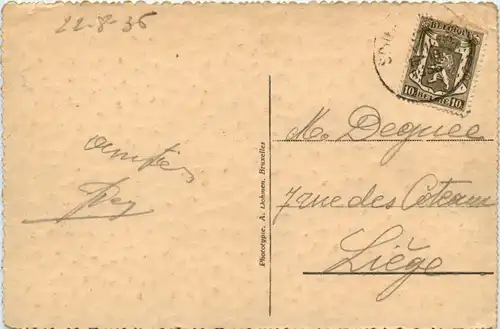 22-8-36
BELGIQUE
10 BELGIE 10
amitiés
M. Dequee
7 rue des Coteaux
Liège
Phototypie, A. Dohmen, Bruxelles